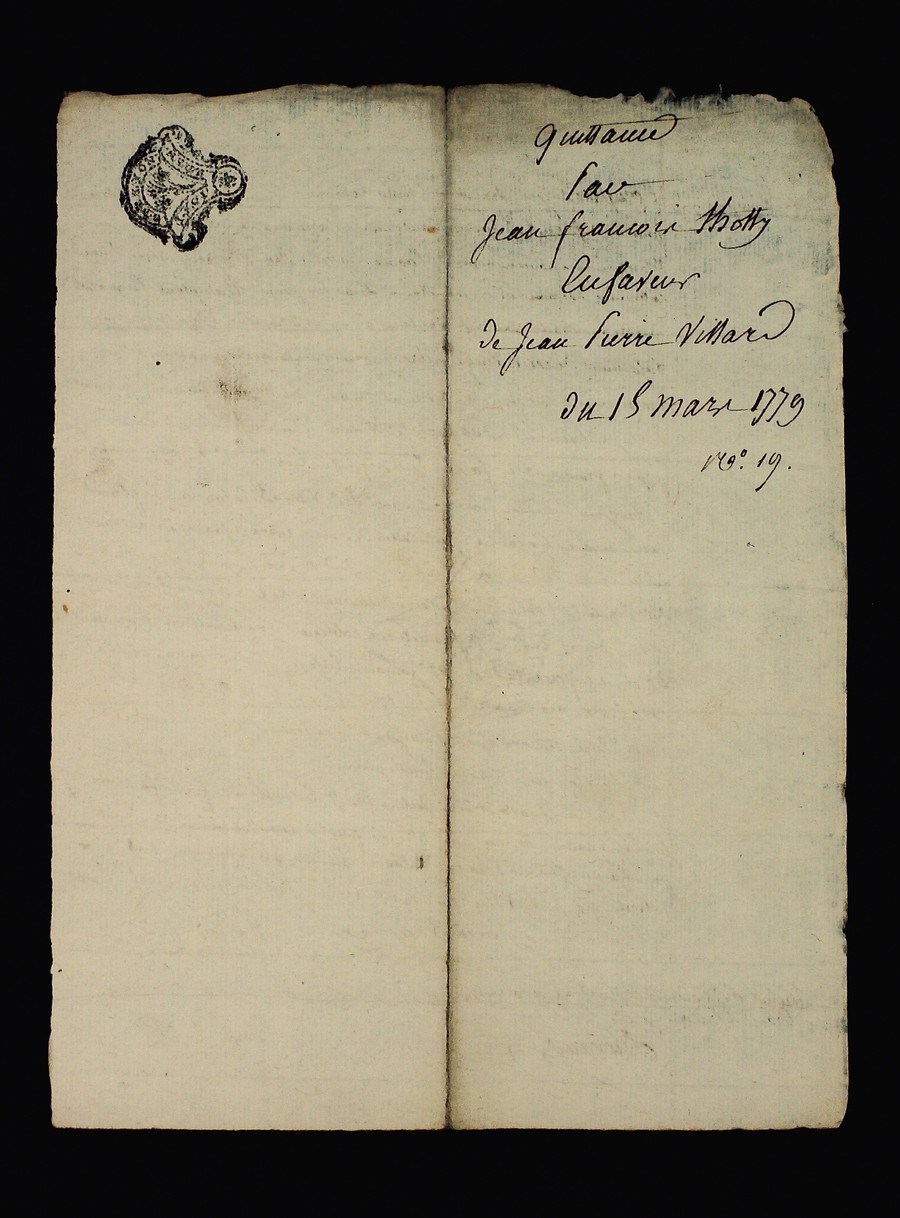 quittance
par
Jean francois Thotty
En faveur
de Jean Pierre Villard
du 15 mars 1779
no. 19.